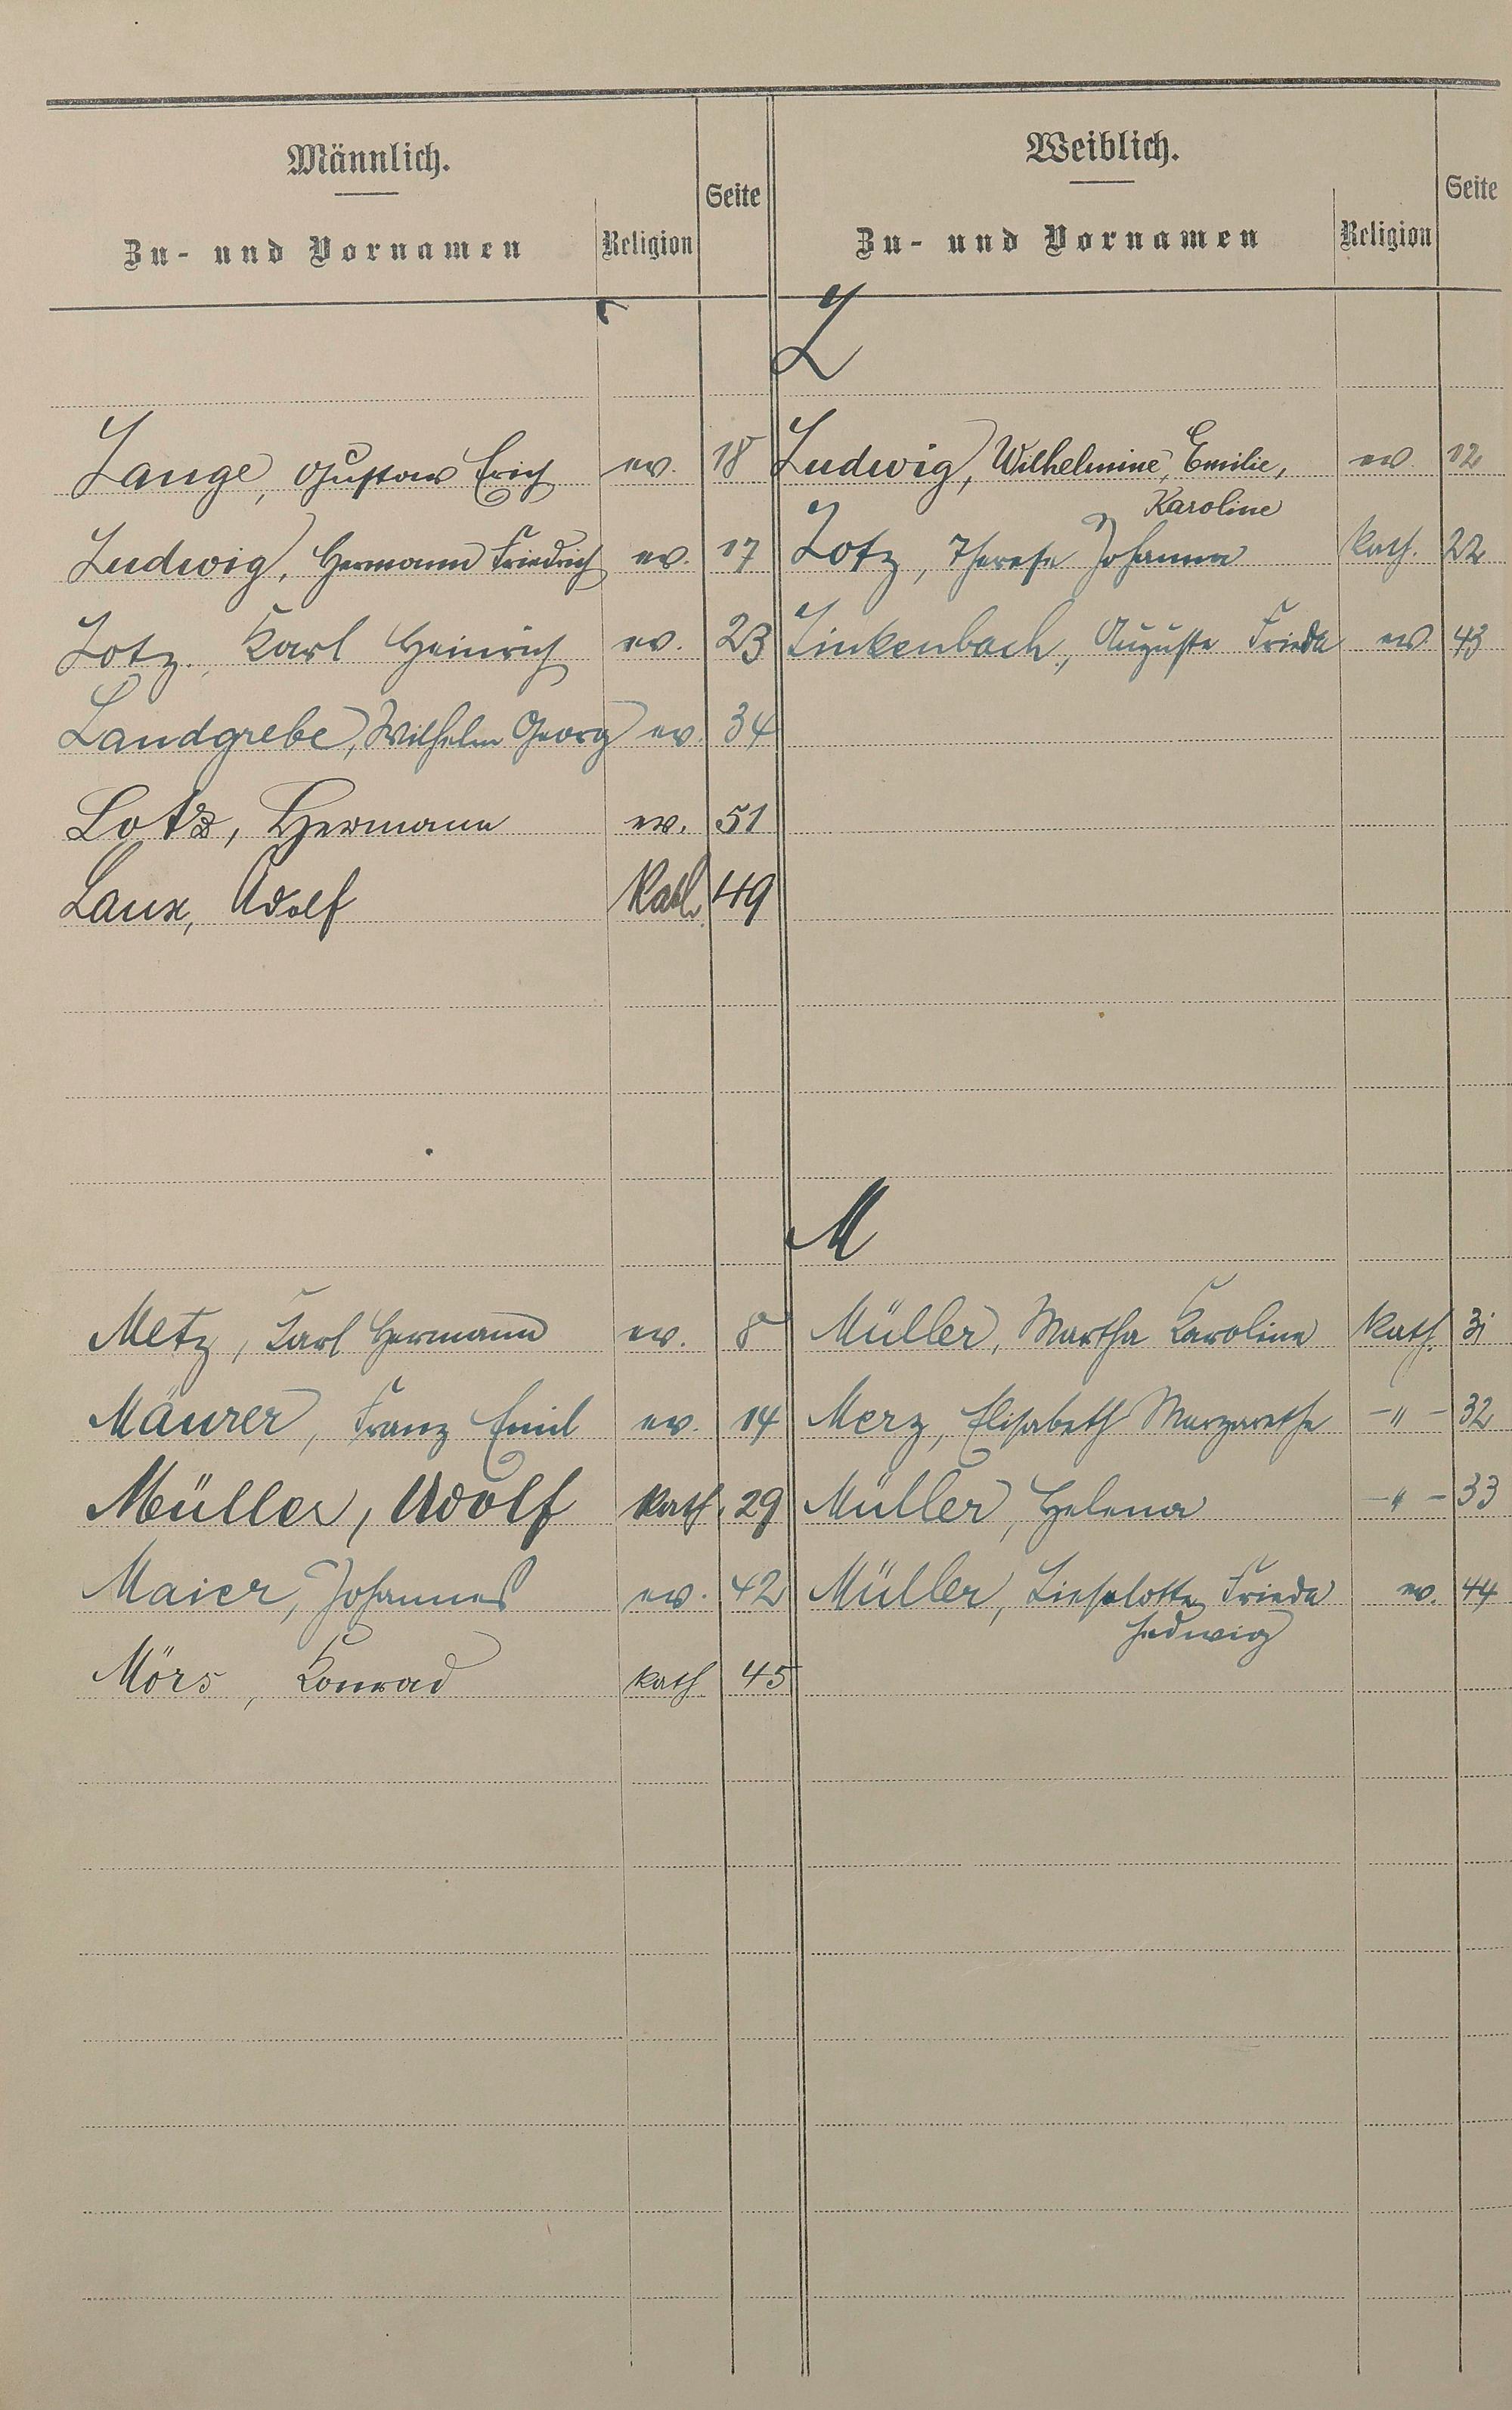 Männlich. Weiblich.
Zu- und Vornamen Religion Seite Zu- und Vornamen Religion Seite
L
Lange, Gustav Erich ev. 18 Ludwig, Wilhelmine, Emilie, ev. 12
Karoline
Ludwig, Hermann Friedrich ev. 17 Lotz, Therese Johanna kath. 22
Lotz, Karl Heinrich ev. 23 Linkenbach, Auguste Frieda ev. 43
Landgrebe, Wilhelm Georg ev. 34
Lotz, Hermann ev. 51
Laux, Adolf Kath. 49
M
Metz, Karl Hermann ev. 8 Müller, Martha Karoline Kath. 31
Mäurer, Franz Emil ev. 14 Merz, Elisabeth Margarethe -"- 32
Müller, Adolf kath. 29 Müller, Helena -"- 33
Maier, Johannes ev. 42 Müller, Lieselotte Frieda ev. 44
Hedwig
Mörs, Konrad kath 45